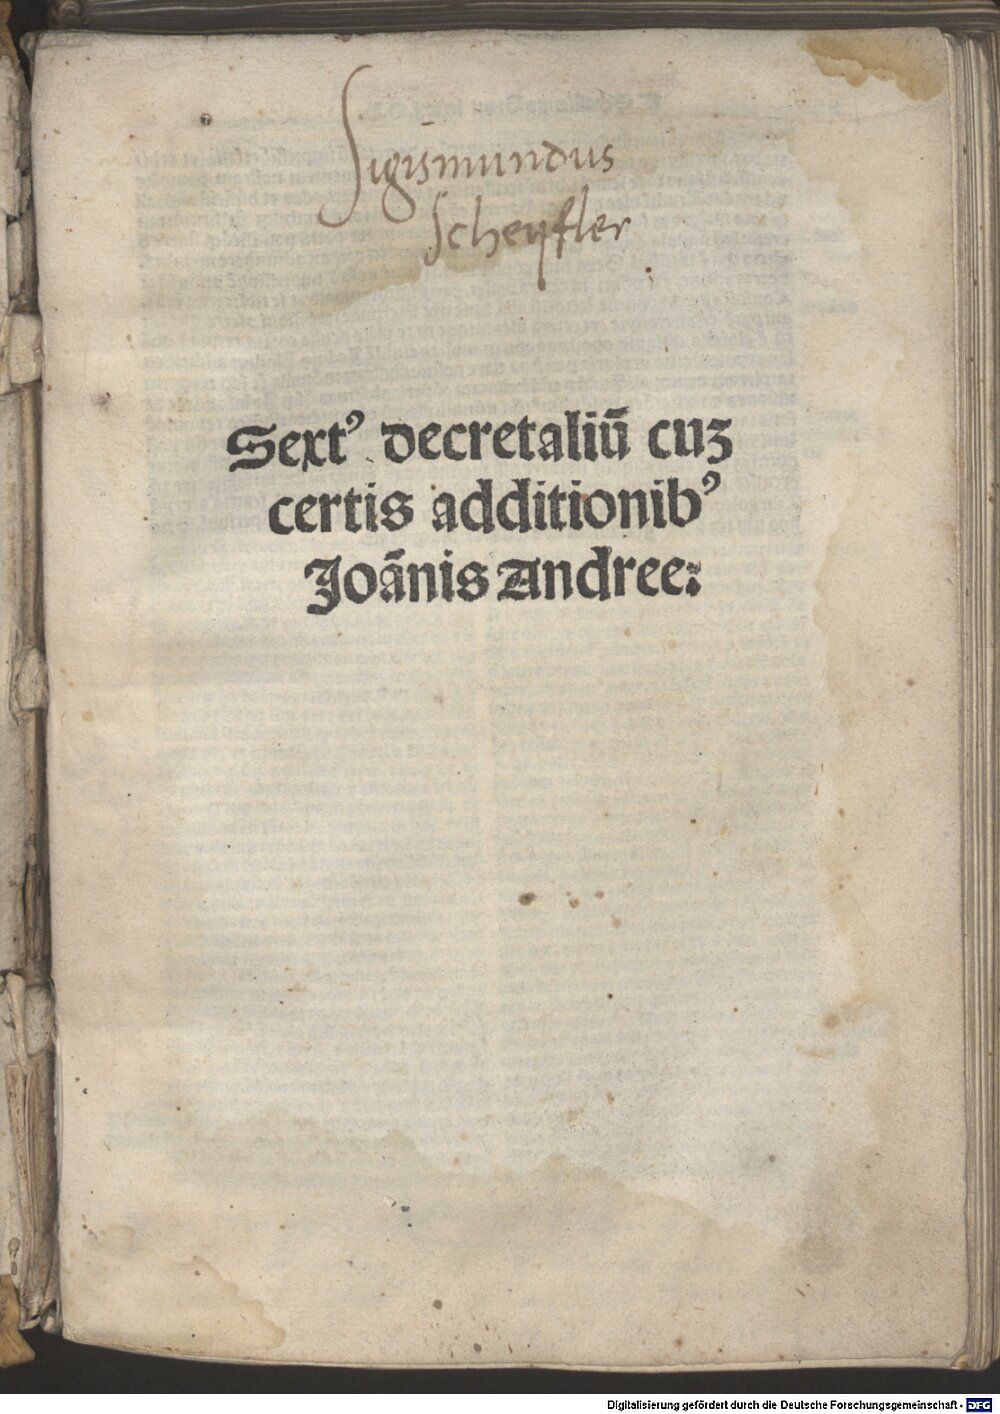 Sigismundus
Scheyfler
Sextꝰ decretaliū cuꝫ
certis additionibꝰ
Joānis Andree:
Digitalisierung gefördert durch die Deutsche Forschungsgemeinschaft - DFG